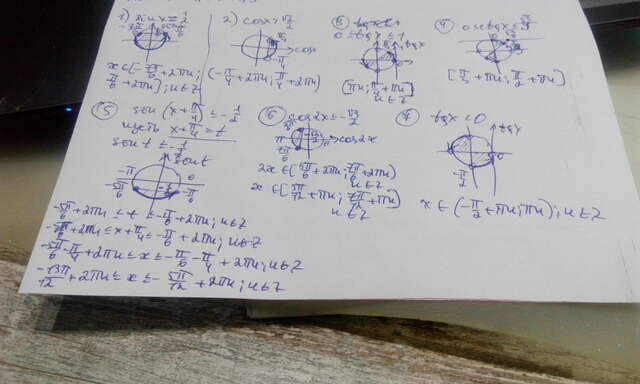 1) sin x = 1/2
x ∈ [-7π/6 + 2πn;
π/6 + 2πn]; n ∈ Z
2) cos x > √2/2
cos
(-π/4 + 2πn; π/4 + 2πn)
0 ≤ tg x ≤ 1
tg x
[πn; π/4 + πn]
n ∈ Z
4) 0 ≤ ctg x ≤ √3/3
[π/3 + πn; π/2 + πn]
5) sin (x + π/4) ≤ -1/2
пусть x + π/4 = t
sin t ≤ -1/2
sin t
-π 0
-5π/6 -π/6
-5π/6 + 2πn ≤ t ≤ -π/6 + 2πn; n ∈ Z
-5π/6 + 2πn ≤ x + π/4 ≤ -π/6 + 2πn; n ∈ Z
-5π/6 - π/4 + 2πn ≤ x ≤ -π/6 - π/4 + 2πn; n ∈ Z
-13π/12 + 2πn ≤ x ≤ -5π/12 + 2πn; n ∈ Z
6) cos 2x ≤ -√3/2
cos 2x
2x ∈ [5π/6 + 2πn; 7π/6 + 2πn]
n ∈ Z
x ∈ [5π/12 + πn; 7π/12 + πn]
n ∈ Z
tg x < 0
tg x
-π/2
x ∈ (-π/2 + πn; πn); n ∈ Z